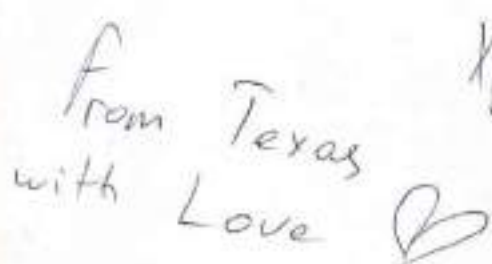 From Texas
with Love ♡